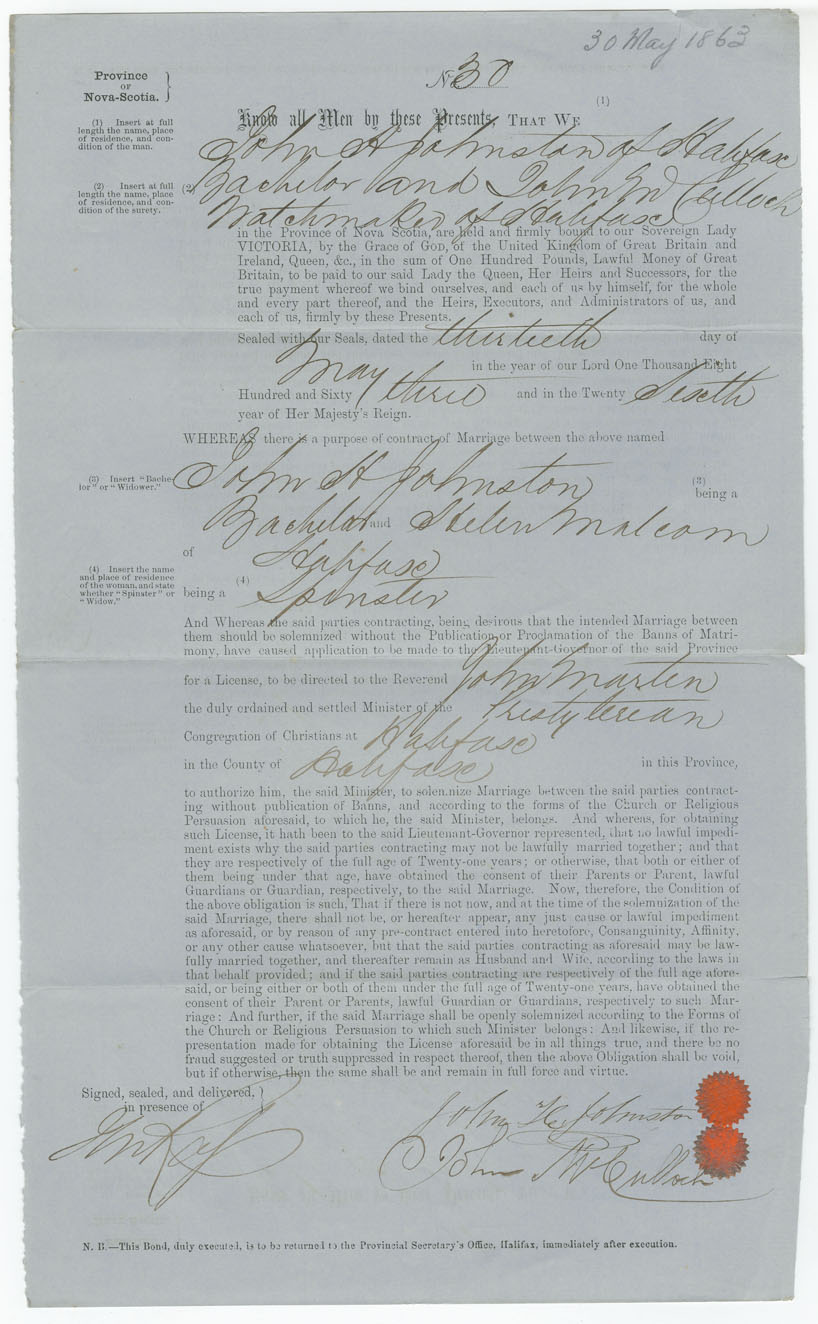 30 May 1863
Province
OF
Nova-Scotia.
No 30
(1)
Know all Men by these Presents, THAT WE
(1) Insert at full
length the name, place
of residence, and con-
dition of the man.
John H Johnston of Halifax
(2) Insert at full
length the name, place
of residence, and con-
dition of the surety.
(2) Bachelor and John McCulloch
Watchmaker of Halifax
in the Province of Nova Scotia, are held and firmly bound to our Sovereign Lady
VICTORIA, by the Grace of GOD, of the United Kingdom of Great Britain and
Ireland, Queen, &c., in the sum of One Hundred Pounds, Lawful Money of Great
Britain, to be paid to our said Lady the Queen, Her Heirs and Successors, for the
true payment whereof we bind ourselves, and each of us by himself, for the whole
and every part thereof, and the Heirs, Executors, and Administrators of us, and
each of us, firmly by these Presents.
Sealed with our Seals, dated the thirtieth day of
May in the year of our Lord One Thousand Eight
Hundred and Sixty three and in the Twenty Sixth
year of Her Majesty's Reign.
WHEREAS there is a purpose of contract of Marriage between the above named
(3) Insert "Bache-
lor" or "Widower."
John H Johnston (3) being a
Bachelor and Helen Malcom
of Halifax
(4) Insert the name
and place of residence
of the woman, and state
whether "Spinster" or
"Widow."
(4)
being a Spinster
And Whereas the said parties contracting, being desirous that the intended Marriage between
them should be solemnized without the Publication or Proclamation of the Banns of Matri-
mony, have caused application to be made to the Lieutenant-Governor of the said Province
for a License, to be directed to the Reverend John Martin
the duly ordained and settled Minister of the Presbyterian
Congregation of Christians at Halifax
in the County of Halifax in this Province,
to authorize him, the said Minister, to solemnize Marriage between the said parties contract-
ing without publication of Banns, and according to the forms of the Church or Religious
Persuasion aforesaid, to which he, the said Minister, belongs. And whereas, for obtaining
such License, it hath been to the said Lieutenant-Governor represented, that no lawful impedi-
ment exists why the said parties contracting may not be lawfully married together; and that
they are respectively of the full age of Twenty-one years; or otherwise, that both or either of
them being under that age, have obtained the consent of their Parents or Parent, lawful
Guardians or Guardian, respectively, to the said Marriage. Now, therefore, the Condition of
the above obligation is such, That if there is not now, and at the time of the solemnization of the
said Marriage, there shall not be, or hereafter appear, any just cause or lawful impediment
as aforesaid, or by reason of any pre-contract entered into heretofore, Consanguinity, Affinity,
or any other cause whatsoever, but that the said parties contracting as aforesaid may be law-
fully married together, and thereafter remain as Husband and Wife, according to the laws in
that behalf provided; and if the said parties contracting are respectively of the full age afore-
said, or being either or both of them under the full age of Twenty-one years, have obtained the
consent of their Parent or Parents, lawful Guardian or Guardians, respectively to such Mar-
riage: And further, if the said Marriage shall be openly solemnized according to the Forms of
the Church or Religious Persuasion to which such Minister belongs: And likewise, if the re-
presentation made for obtaining the License aforesaid be in all things true, and there be no
fraud suggested or truth suppressed in respect thereof, then the above Obligation shall be void,
but if otherwise, then the same shall be and remain in full force and virtue.
Signed, sealed, and delivered,
in presence of
John H Johnston
John McCulloch
N. B.—This Bond, duly executed, is to be returned to the Provincial Secretary's Office, Halifax, immediately after execution.